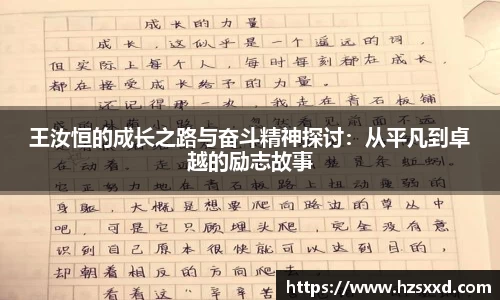 成长的力量
成长，这似乎是一个遥远的词，
但实际上每个人，每时每刻都在成长，
都在接受成长给予的力量。
还记得那一次，我走在青石板铺
王汝恒的成长之路与奋斗精神探讨：从平凡到卓
越的励志故事
身躯，大概是想要爬向路边的草丛中
吧，可是它只顾埋头爬，完全没有意
识到自己原本很快就可以达到目的，
却朝着相反的方向爬去！
看着这"辛辛苦
https://www.hzsxxd.com